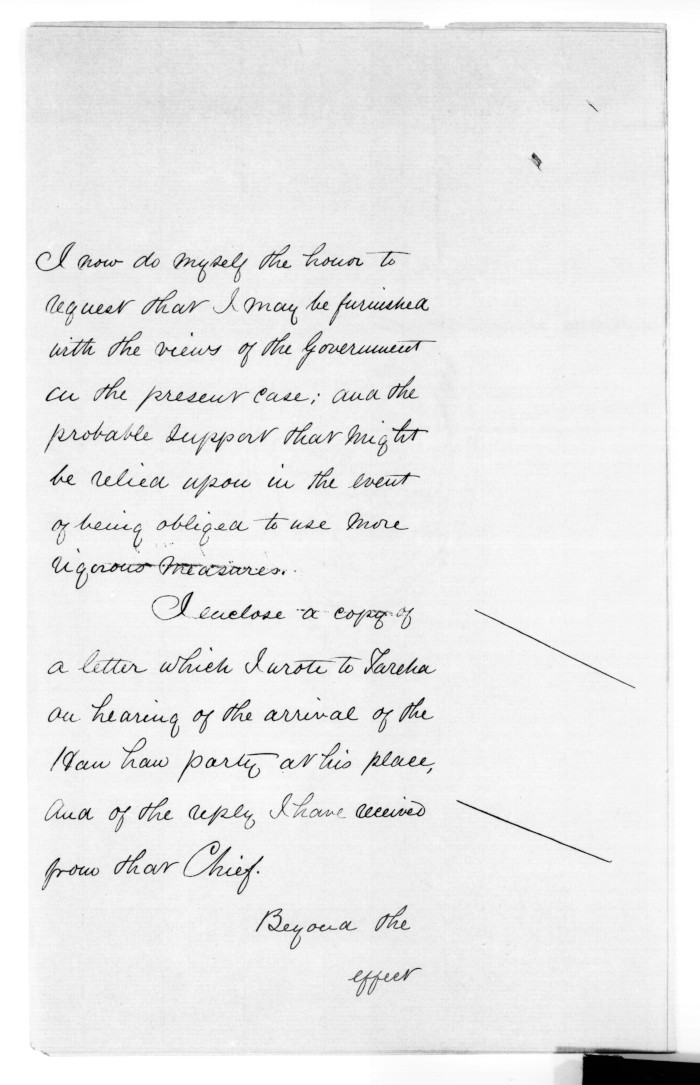 I now do myself the honor to
request that I may be furnished
with the views of the Government
on the present case; and the
probable support that might
be relied upon in the event
of being obliged to use more
rigorous measures.
I enclose a copy of
a letter which I wrote to Tareha
on hearing of the arrival of the
Hau hau party at his place,
and of the reply I have received
from that Chief.
Beyond the
effect